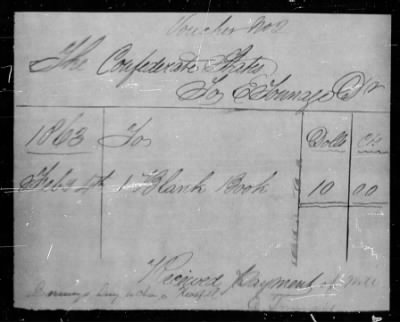 Voucher No 2
The Confederate States
To E Younage Dr
1863 To Dolls Cts
Feby 4th 1 Blank Book 10 00
Recieved Payment of